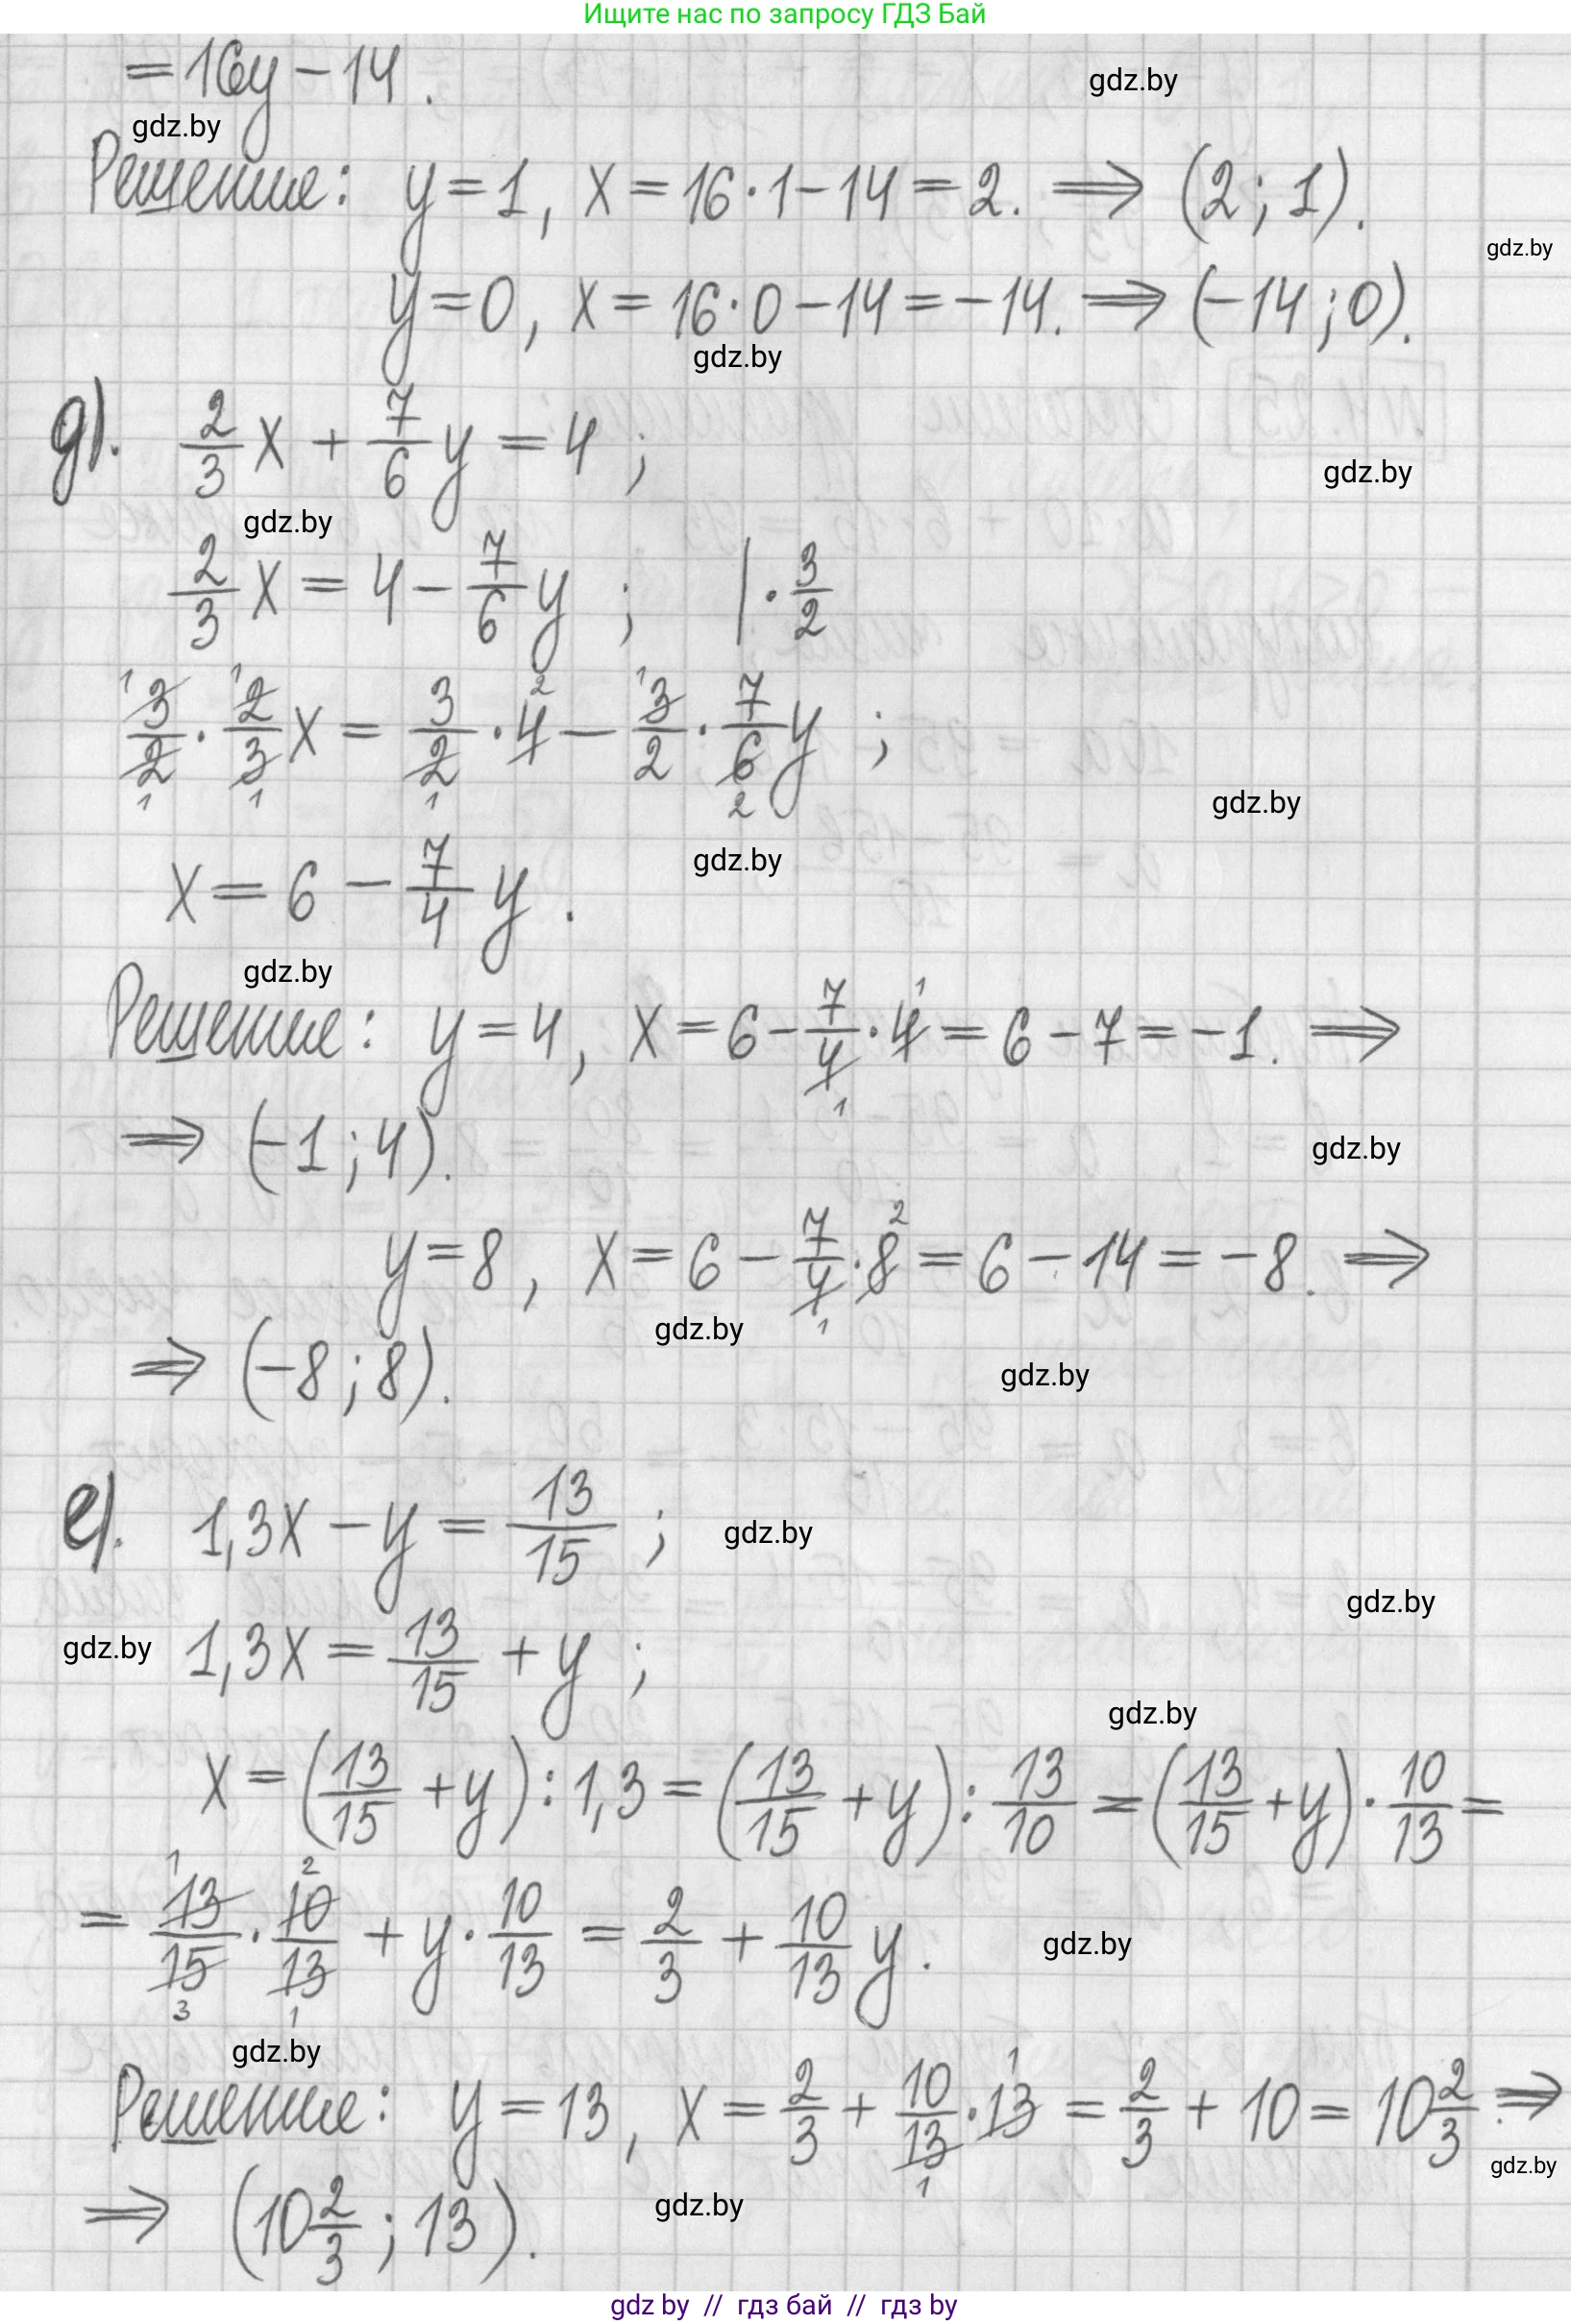 Ищите нас по запросу ГДЗ Бай
= 16y − 14.
gdz.by
gdz.by
Решение: y = 1, x = 16·1 − 14 = 2. ⟹ (2; 1).
gdz.by
y = 0, x = 16·0 − 14 = −14. ⟹ (−14; 0).
gdz.by
д). 2/3 x + 7/6 y = 4 ;
gdz.by
gdz.by
2/3 x = 4 − 7/6 y ; | · 3/2
3/2 · 2/3 x = 3/2 · 4 − 3/2 · 7/6 y ;
gdz.by
x = 6 − 7/4 y .
gdz.by
gdz.by
Решение: y = 4, x = 6 − 7/4 · 4 = 6 − 7 = −1. ⟹
⟹ (−1; 4).
gdz.by
y = 8, x = 6 − 7/4 · 8 = 6 − 14 = −8. ⟹
gdz.by
⟹ (−8; 8).
gdz.by
е). 1,3x − y = 13/15 ;
gdz.by
gdz.by
gdz.by
1,3x = 13/15 + y ;
gdz.by
x = (13/15 + y) : 1,3 = (13/15 + y) : 13/10 = (13/15 + y) · 10/13 =
= 13/15 · 10/13 + y · 10/13 = 2/3 + 10/13 y .
gdz.by
gdz.by
Решение: y = 13, x = 2/3 + 10/13 · 13 = 2/3 + 10 = 10 2/3. ⟹
gdz.by
⟹ (10 2/3 ; 13).
gdz.by
gdz by // гдз бай // гдз by